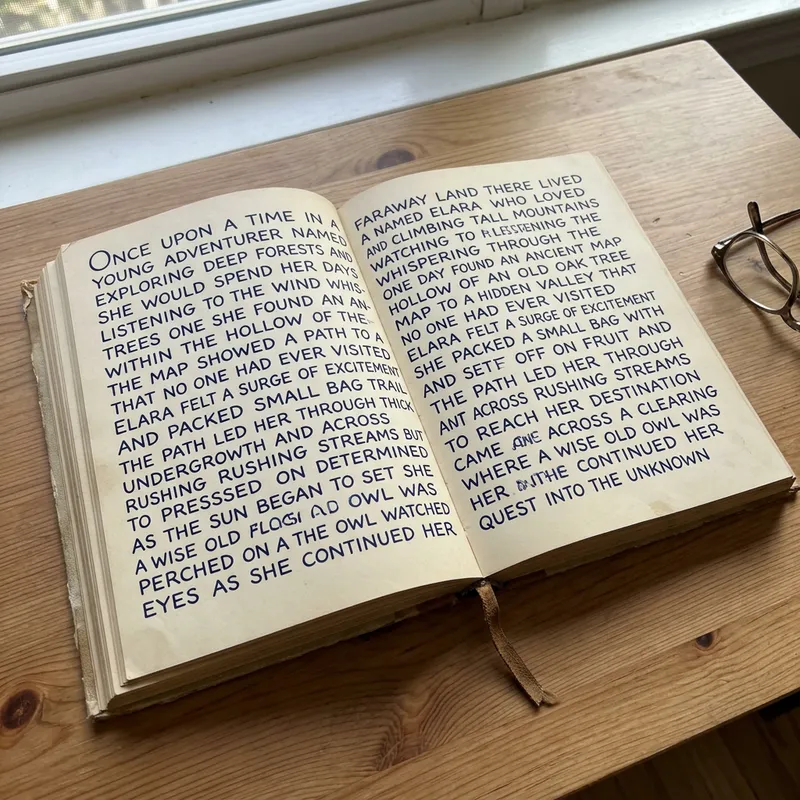 ONCE UPON A TIME IN A
YOUNG ADVENTURER NAMED
EXPLORING DEEP FORESTS AND
SHE WOULD SPEND HER DAYS
LISTENING TO THE WIND WHIS-
TREES ONE SHE FOUND AN AN-
WITHIN THE HOLLOW OF THE
THE MAP SHOWED A PATH TO A
THAT NO ONE HAD EVER VISITED
ELARA FELT A SURGE OF EXCITEMENT
AND PACKED SMALL BAG TRAIL
THE PATH LED HER THROUGH THICK
UNDERGROWTH AND ACROSS
RUSHING RUSHING STREAMS BUT
TO PRESSSED ON DETERMINED
AS THE SUN BEGAN TO SET SHE
A WISE OLD OWL WAS
PERCHED ON A THE OWL WATCHED
EYES AS SHE CONTINUED HER
FARAWAY LAND THERE LIVED
A NAMED ELARA WHO LOVED
AND CLIMBING TALL MOUNTAINS
WATCHING TO THE
WHISPERING THROUGH THE
ONE DAY FOUND AN ANCIENT MAP
HOLLOW OF AN OLD OAK TREE
MAP TO A HIDDEN VALLEY THAT
NO ONE HAD EVER VISITED
ELARA FELT A SURGE OF EXCITEMENT
SHE PACKED A SMALL BAG WITH
AND OFF ON FRUIT AND
THE PATH LED HER THROUGH
ANT ACROSS RUSHING STREAMS
TO REACH HER DESTINATION
CAME ACROSS A CLEARING
WHERE A WISE OLD OWL WAS
HER CONTINUED HER
QUEST INTO THE UNKNOWN